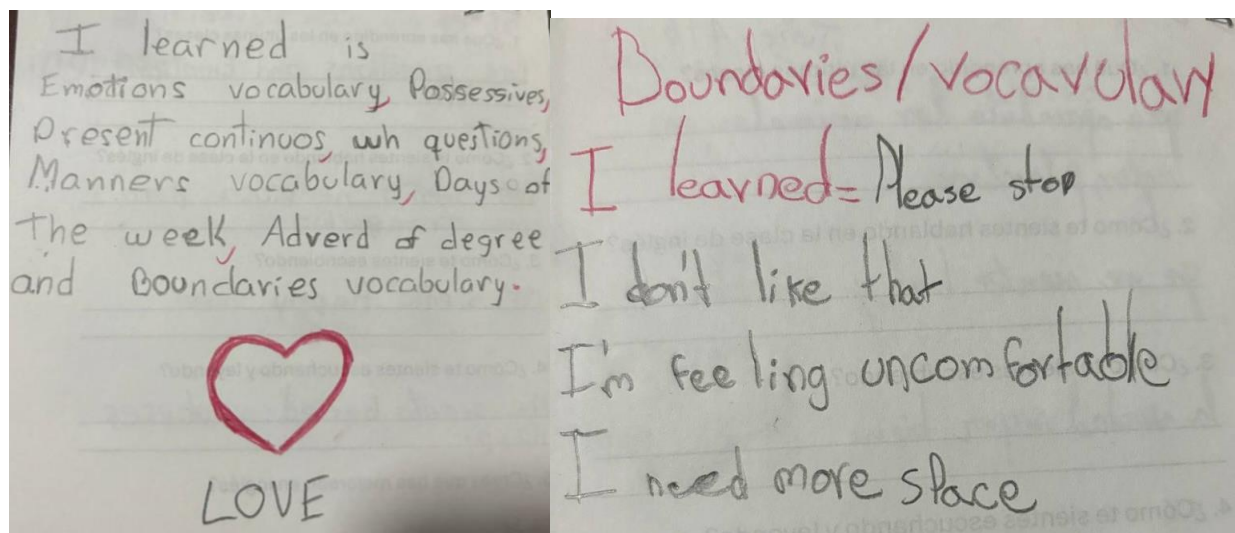 I learned is
Emotions vocabulary, Possessives,
Present continuos, wh questions,
Manners vocabulary, Days of
the week, Adverd of degree
and Boundaries vocabulary.
LOVE
Boundaries/vocavulary
I learned= Please stop
I don't like that
I'm feeling uncomfortable
I need more space